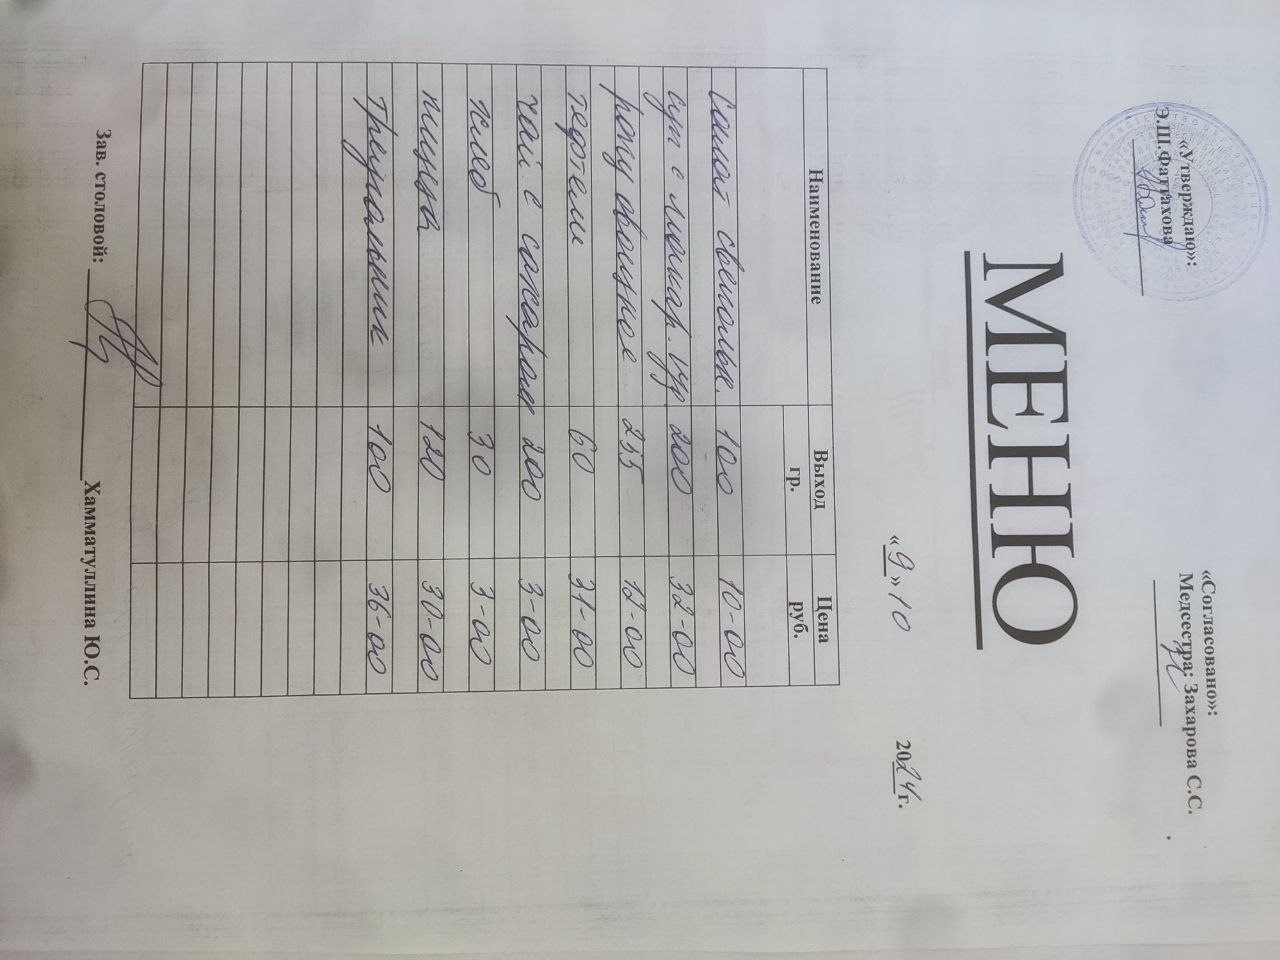 «Утверждаю»:
Э.Ш.Фаттахова
«Согласовано»:
Медсестра: Захарова С.С.
МЕНЮ
«9» 10 2024г.
Наименование Выход гр. Цена руб.
Салат свекольн. 100 10-00
суп с макар. 200 32-00
рагу овощное 12-00
тефтели 60 31-00
чай с сахаром 200 3-00
хлеб 30 3-00
пицца 120 30-00
Треугольник 100 36-00
Зав. столовой: Хамматуллина Ю.С.